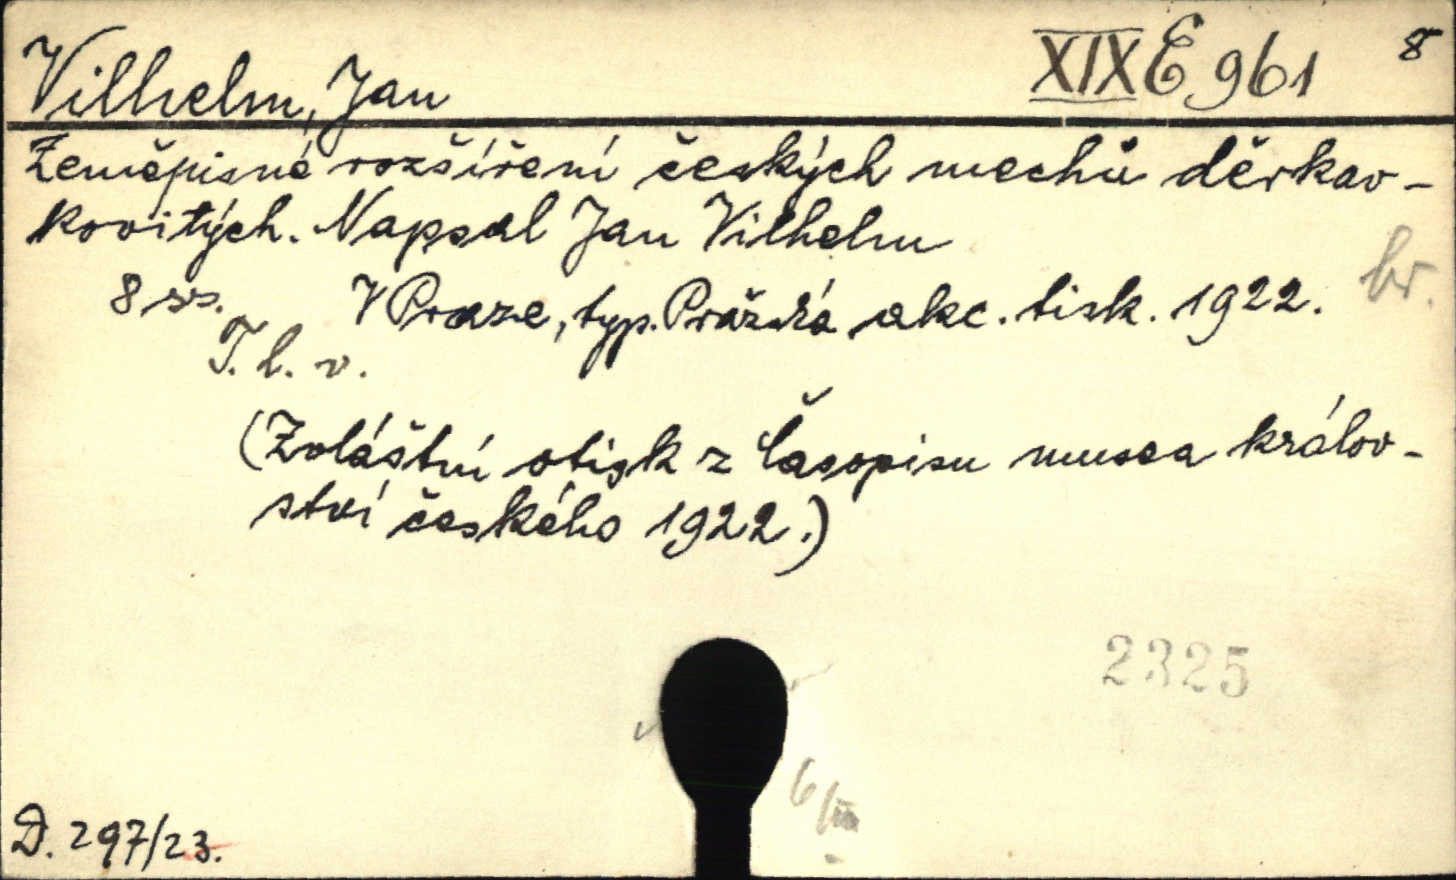 Vilhelm, Jan XIX E 961 8
Zeměpisné rozšíření českých mechů děrkav-
kovitých. Napsal Jan Vilhelm
br.
8 ss. V Praze, typ. Pražská akc. tisk. 1922.
T. l. v.
(Zvláštní otisk z Časopisu musea králov-
ství českého 1922.)
2325
6/III
D. 297/23.